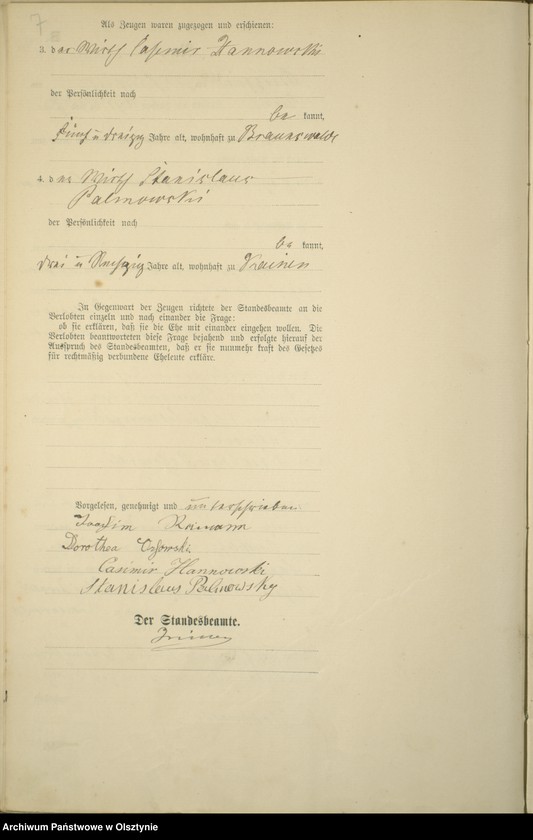 7
Als Zeugen waren zugezogen und erschienen:
3. der Wirth Casimir Hannowski
der Persönlichkeit nach
be kannt,
fünf u dreizig Jahre alt, wohnhaft zu Braunswalde
4. der Wirth Stanislaus
Palmowski
der Persönlichkeit nach
be kannt,
drei u Jahre alt, wohnhaft zu Kainen
In Gegenwart der Zeugen richtete der Standesbeamte an die
Verlobten einzeln und nach einander die Frage:
ob sie erklären, daß sie die Ehe mit einander eingehen wollen. Die
Verlobten beantworteten diese Frage bejahend und erfolgte hierauf der
Ausspruch des Standesbeamten, daß er sie nunmehr kraft des Gesetzes
für rechtmäßig verbundene Eheleute erkläre.
Vorgelesen, genehmigt und unterschrieben
Joachim
Dorothea
Casimir Hannowski
Stanislaus Palmowsky
Der Standesbeamte.
Archiwum Państwowe w Olsztynie